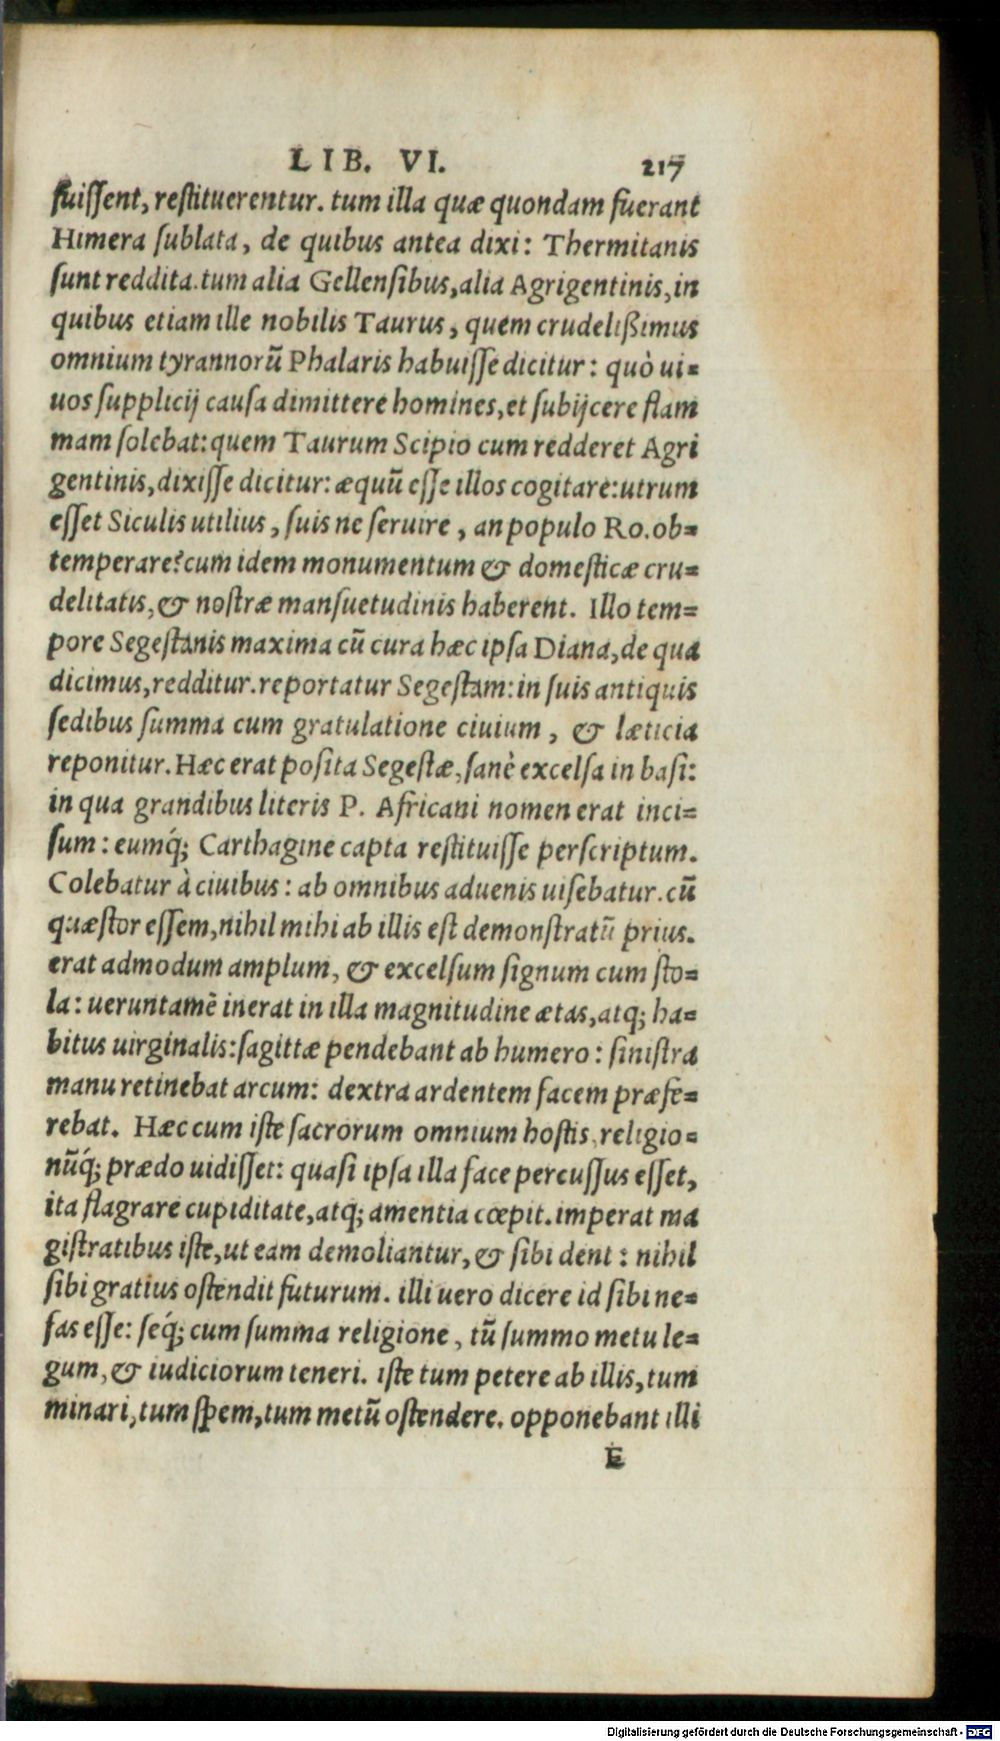 LIB. VI. 217
fuiſſent, reſtituerentur. tum illa quæ quondam fuerant
Himera ſublata, de quibus antea dixi: Thermitanis
ſunt reddita. tum alia Gellenſibus, alia Agrigentinis, in
quibus etiam ille nobilis Taurus, quem crudelißimus
omnium tyrannorũ Phalaris habuiſſe dicitur: quò ui=
uos ſupplicij cauſa dimittere homines, et ſubijcere flam
mam ſolebat: quem Taurum Scipio cum redderet Agri
gentinis, dixiſſe dicitur: æquũ eſſe illos cogitare: utrum
eſſet Siculis utilius, ſuis ne ſeruire, an populo Ro. ob=
temperare? cum idem monumentum & domeſticæ cru=
delitatis, & noſtræ manſuetudinis haberent. Illo tem=
pore Segeſtanis maxima cũ cura hæc ipſa Diana, de qua
dicimus, redditur. reportatur Segeſtam: in ſuis antiquis
ſedibus ſumma cum gratulatione ciuium, & læticia
reponitur. Hæc erat poſita Segeſtæ, ſanè excelſa in baſi:
in qua grandibus literis P. Africani nomen erat inci=
ſum: eumq́; Carthagine capta reſtituiſſe perſcriptum.
Colebatur à ciuibus: ab omnibus aduenis uiſebatur. cũ
quæſtor eſſem, nihil mihi ab illis eſt demonſtratũ prius.
erat admodum amplum, & excelſum ſignum cum ſto=
la: ueruntamẽ inerat in illa magnitudine ætas, atq; ha=
bitus uirginalis: ſagittæ pendebant ab humero: ſiniſtra
manu retinebat arcum: dextra ardentem facem præfe=
rebat. Hæc cum iſte ſacrorum omnium hoſtis, religio=
nũq́; prædo uidiſſet: quaſi ipſa illa face percuſſus eſſet,
ita flagrare cupiditate, atq; amentia cœpit. imperat ma
giſtratibus iſte, ut eam demoliantur, & ſibi dent: nihil
ſibi gratius oſtendit futurum. illi uero dicere id ſibi ne=
fas eſſe: ſeq́; cum ſumma religione, tũ ſummo metu le=
gum, & iudiciorum teneri. iſte tum petere ab illis, tum
minari, tum ſpem, tum metũ oſtendere. opponebant illi
E
Digitalisierung gefördert durch die Deutsche Forschungsgemeinschaft - DFG